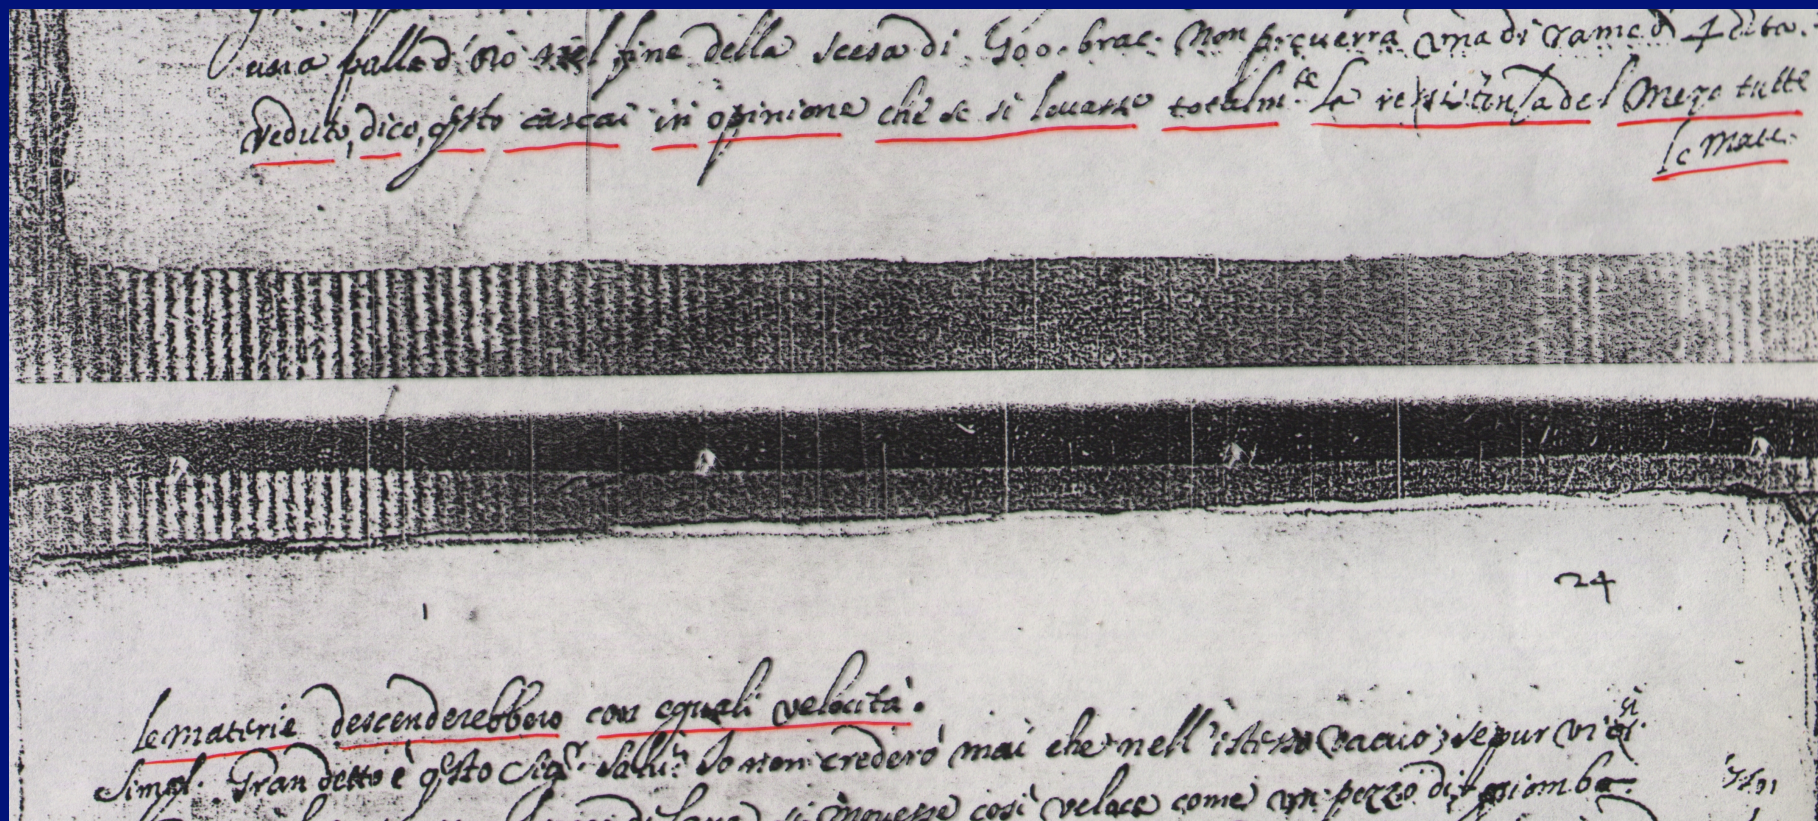 una palla d'oro nel fine della scesa di 400. brac. non preverrà una di rame di 4 dita.
veduto, dico, qsto cascai in opinione che se si levasse totalm.te la resistenza del mezo tutte
le mate.
24
le materie descenderebbero con equali velocità.
Simpl. Gran detto è qsto Sigr. Salu. Io non crederò mai che nell'istesso vacuo, se pur vi
si mouesse così veloce come un pezzo di piombo.